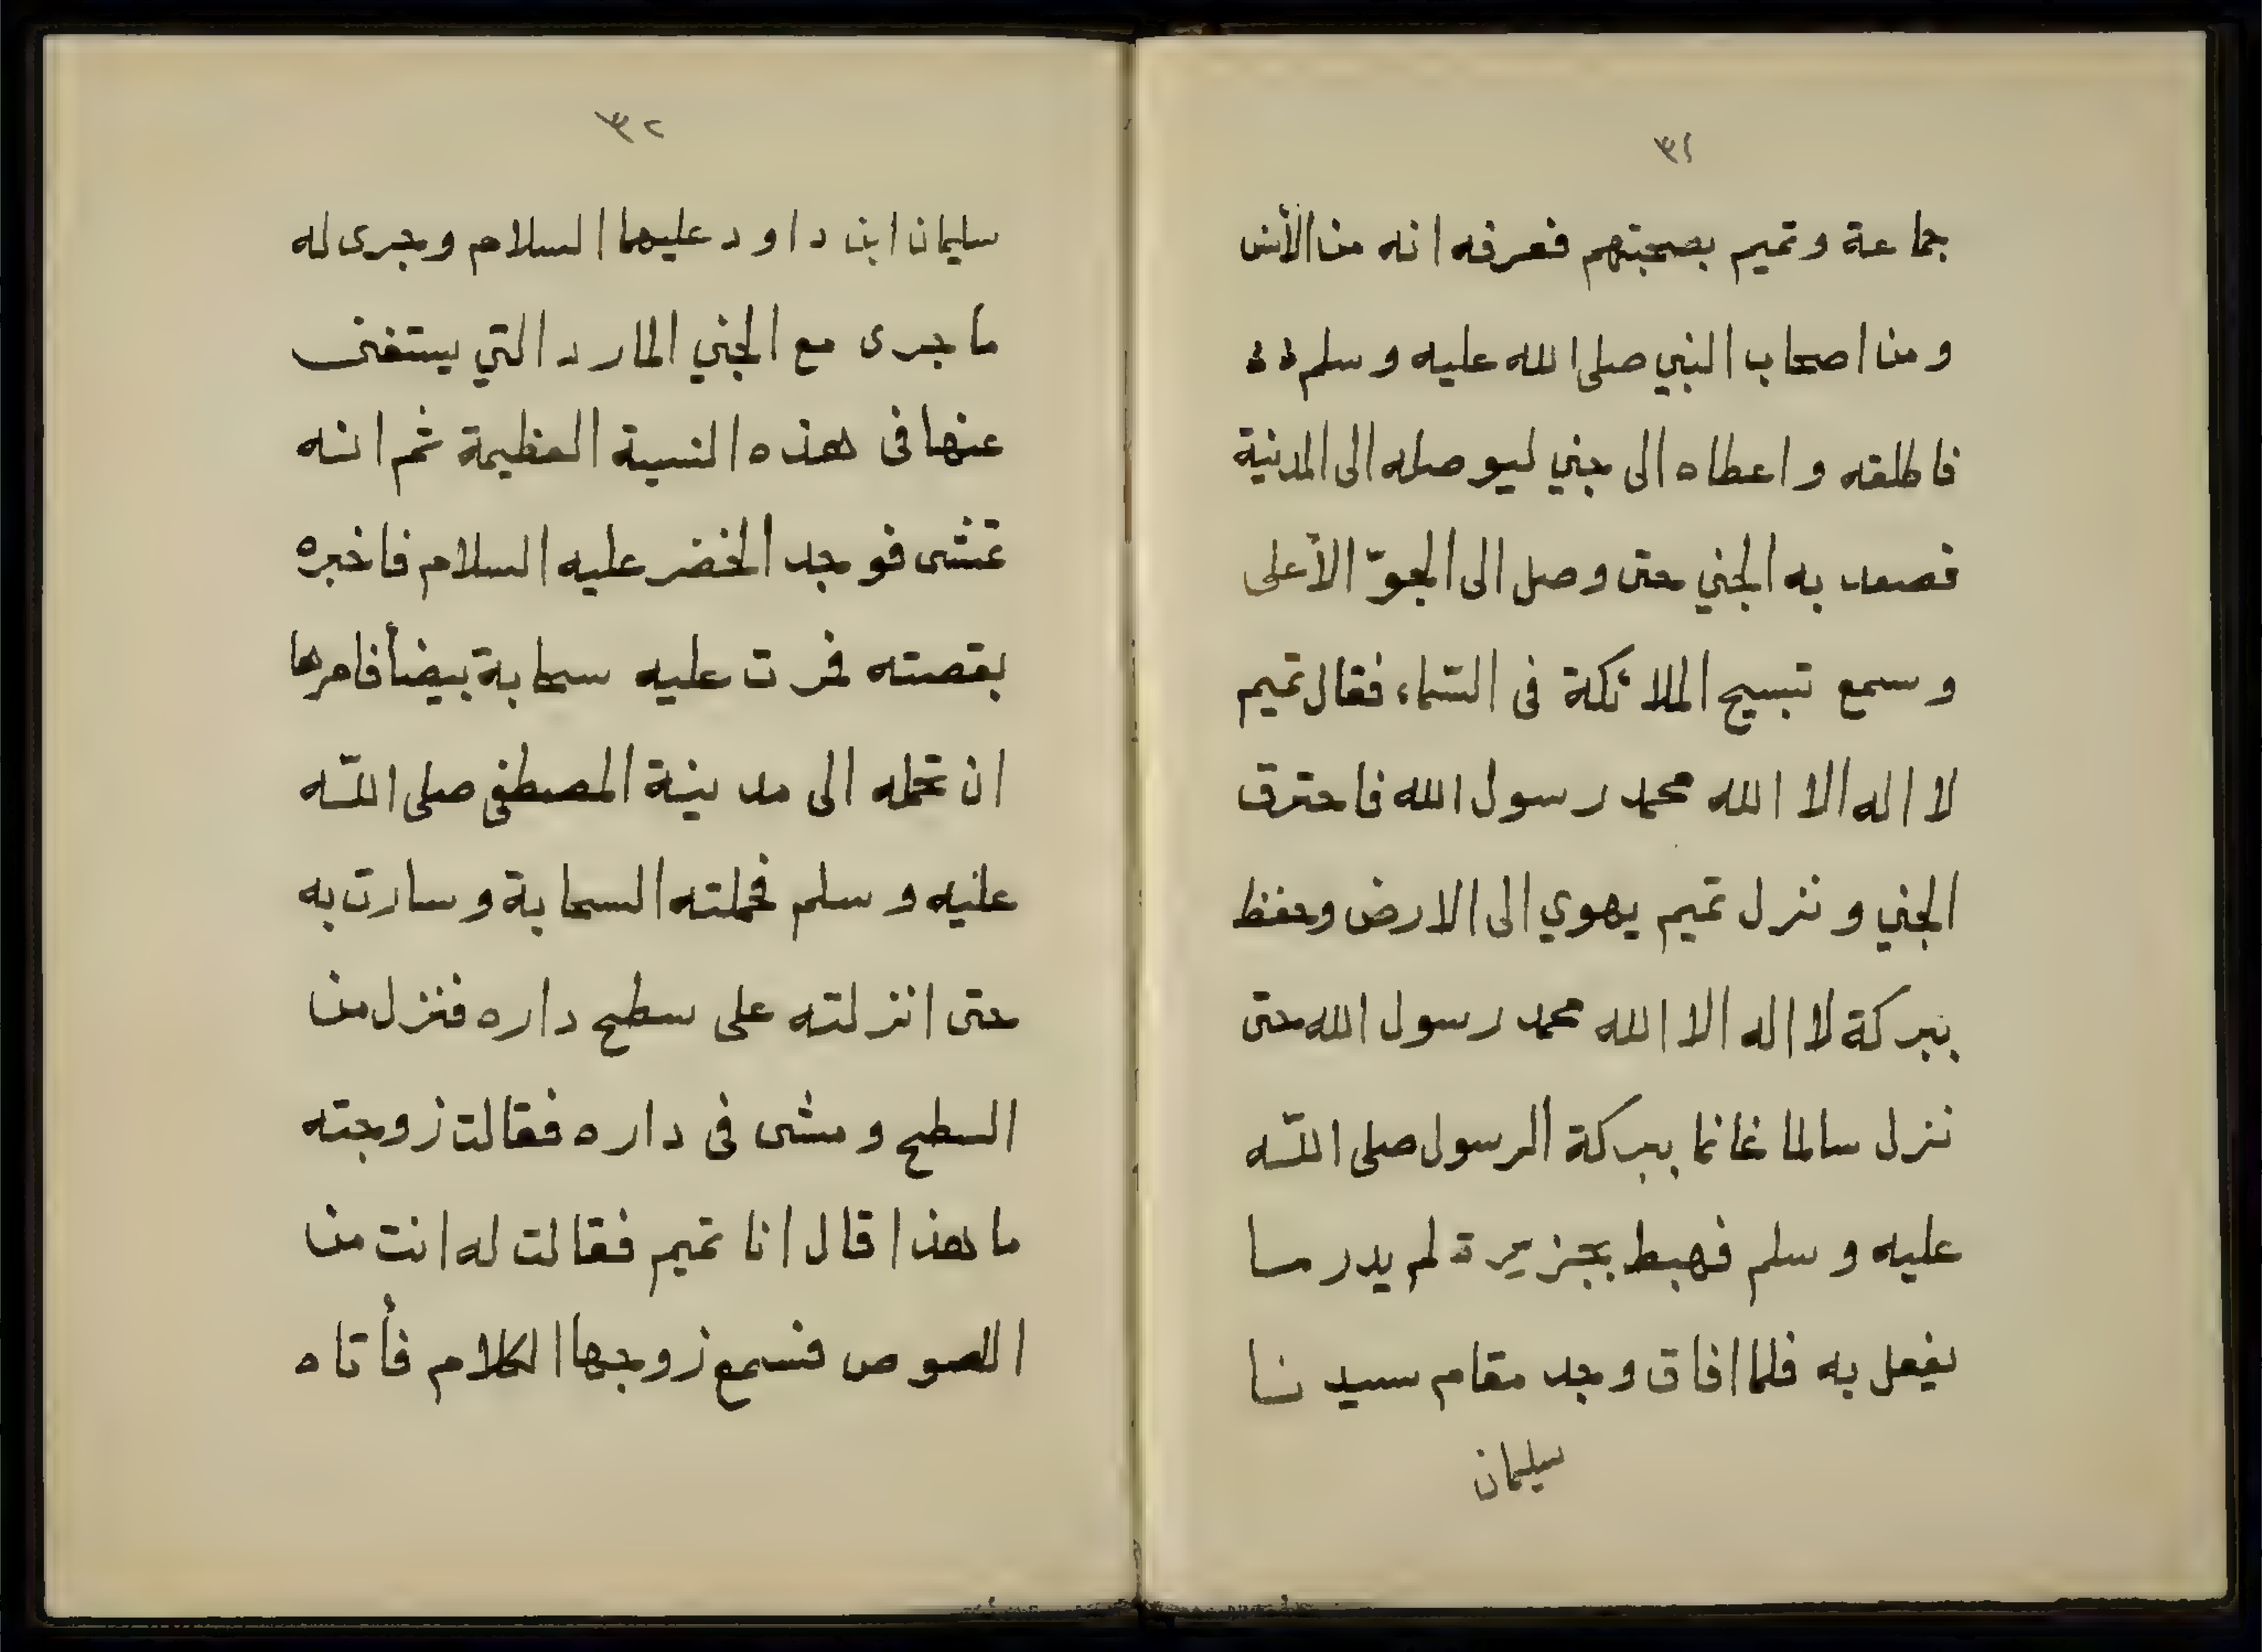 ٣١
جماعة وتميم بصحبتهم فعرفه انه من الأنس
ومن اصحاب النبي صلى الله عليه وسلم
فاطلقه واعطاه الى جني ليوصله الى المدنية
فصعد به الجني حتى وصل الى الجوّ الأعلى
وسمع تبسيح الملائكة فى السّماء فقال تميم
لا اله الا الله محمد رسول الله فاحترق
الجني ونزل تميم يهوي الى الارض وحفظ
ببركة لا اله الا الله محمد رسول الله حتى
نزل سالما غانما ببركة الرسول صلى اللّه
عليه وسلم فهبط بجزيرة لم يدر ما
يفعل به فلما افاق وجد مقام سيدنا
سليمان
٣٢
سليمان ابن داود عليهما السلام وجرى له
ما جرى مع الجني المارد التي يستغنى
عنها فى هذه النسبة العظيمة ثم انه
تمشى فوجد الخضر عليه السلام فاخبره
بقصته فمرت عليه سحابة بيضأ فامرها
ان تحمله الى مدينة المصطفى صلى اللّه
عليه وسلم فحملته السحابة وسارت به
حتى انزلته على سطح داره فنزل من
السطح ومشى فى داره فقالت زوجته
ما هذا قال انا تميم فقالت له انت من
اللصوص فسمع زوجها الكلام فأتاه